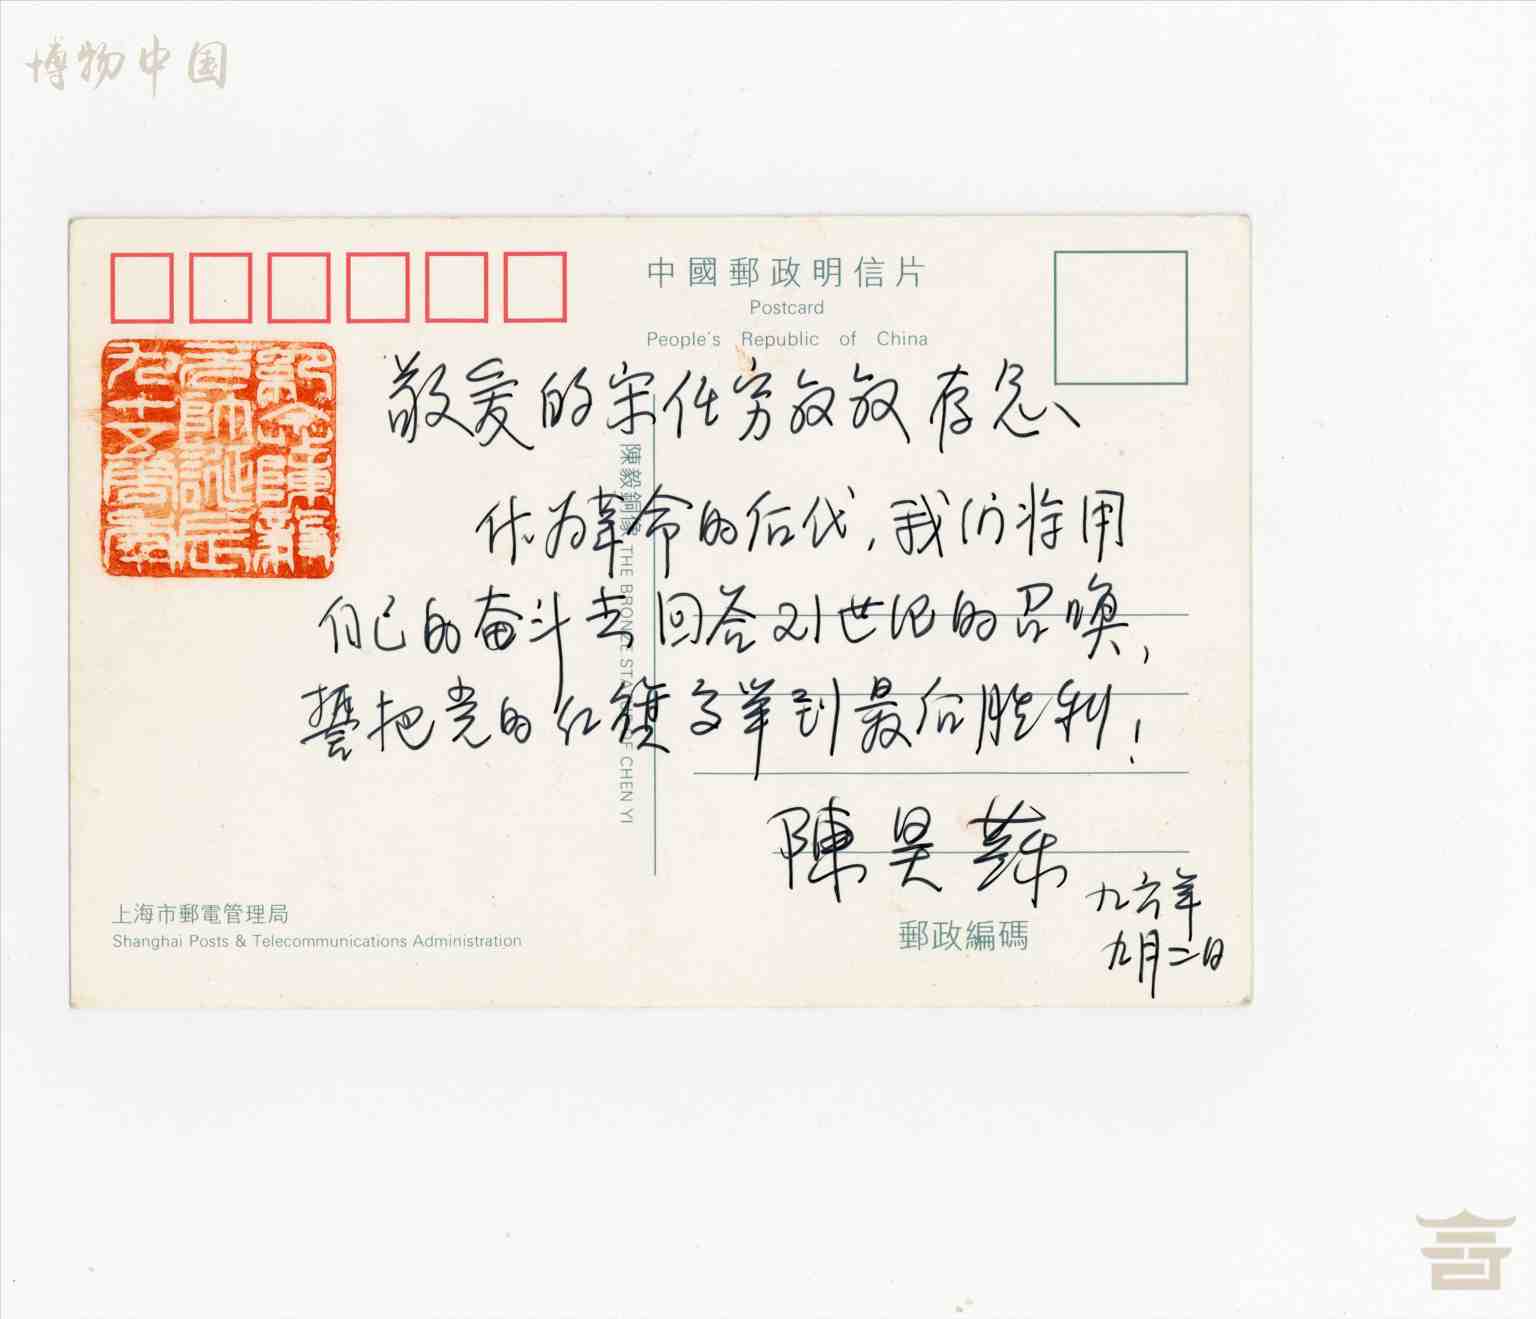 博物中国
中國郵政明信片
Postcard
People's Republic of China
紀念陳毅
元帥誕辰
九十五周年
敬爱的宋任穷叔叔存念、
作为革命的后代，我们将用
自己的奋斗去回答21世纪的召唤，
誓把党的红旗高举到最后胜利！
陳昊蘇
九六年
九月二日
陳毅銅像 THE BRONZE STATUE OF CHEN YI
上海市郵電管理局
Shanghai Posts & Telecommunications Administration
郵政編碼